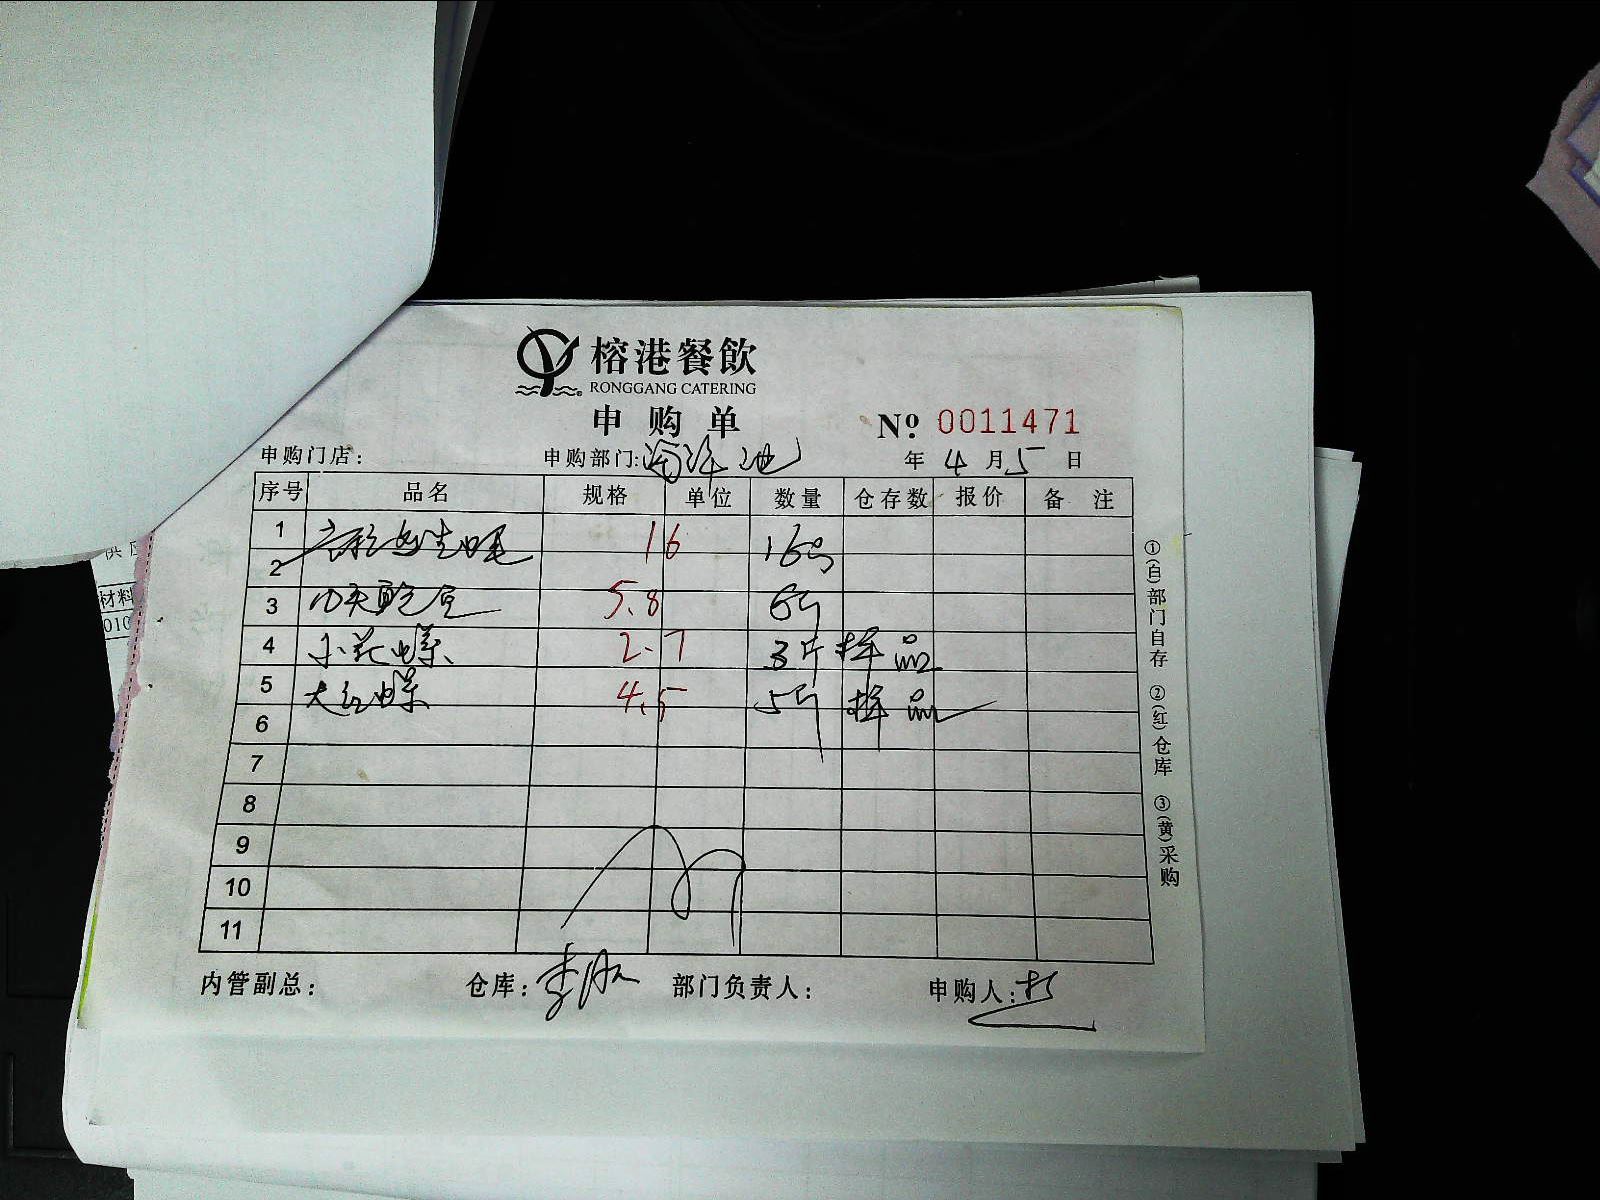 榕港餐飲
RONGGANG CATERING
申购单
№ 0011471
申购门店： 申购部门：海鲜池 年 4 月 5 日
序号 品名 规格 单位 数量 仓存数 报价 备注
1 16 16只
2
3 5.8 6斤
4 小花螺 2.7 3斤 样品
5 大红螺 4.5 5斤 样品
6
7
8
9
10
11
内管副总： 仓库： 部门负责人： 申购人：
①(白)部门自存 ②(红)仓库 ③(黄)采购
供应
材料
010